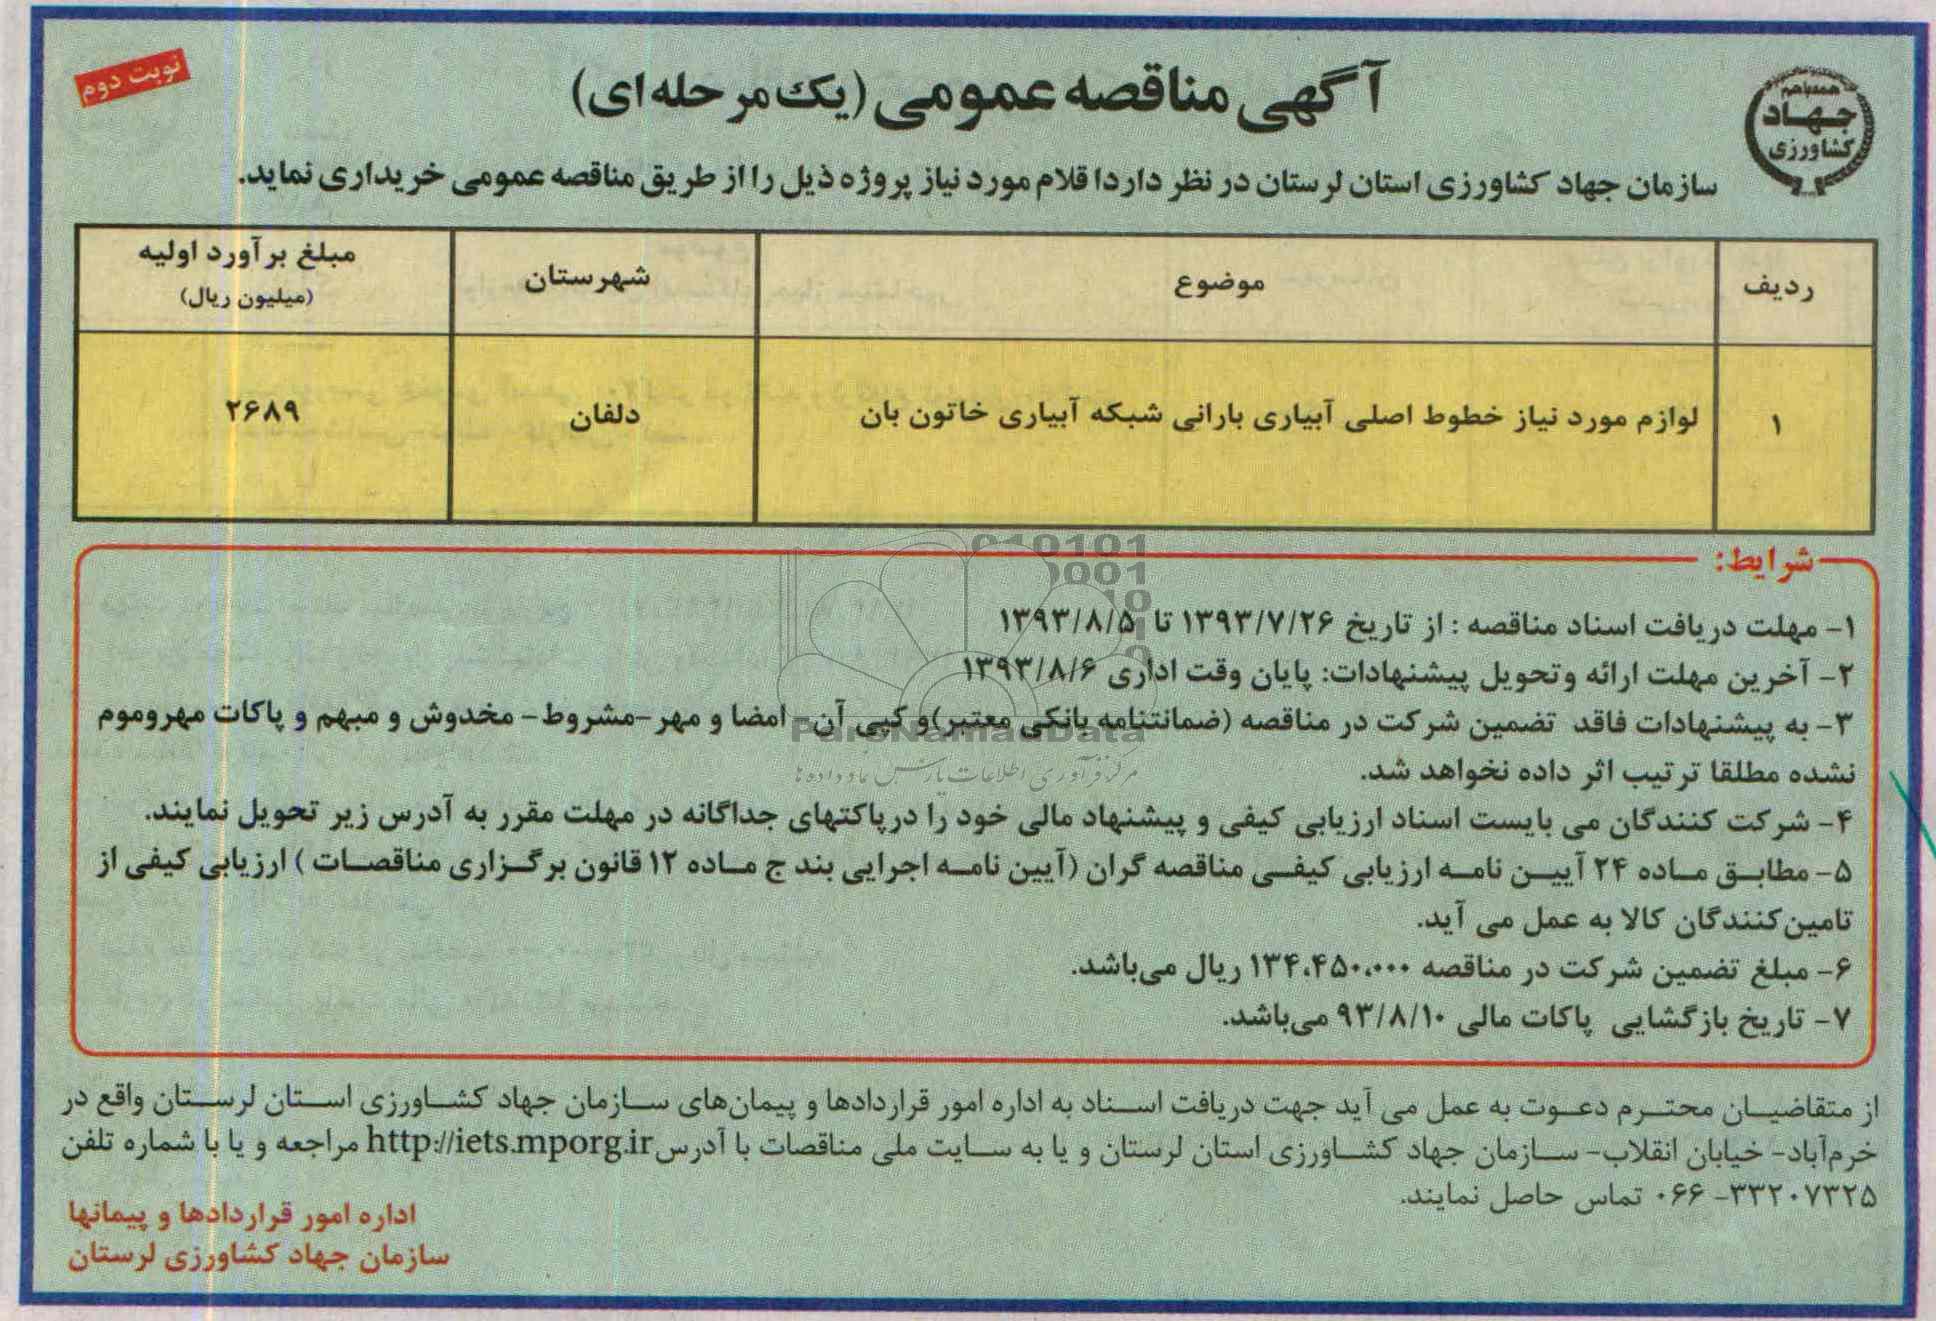 نوبت دوم
آگهی مناقصه عمومی (یک مرحله ای)
همه با هم
جهاد
کشاورزی
سازمان جهاد کشاورزی استان لرستان در نظر دارد اقلام مورد نیاز پروژه ذیل را از طریق مناقصه عمومی خریداری نماید.
ردیف	موضوع	شهرستان	مبلغ برآورد اولیه (میلیون ریال)
۱	لوازم مورد نیاز خطوط اصلی آبیاری بارانی شبکه آبیاری خاتون بان	دلفان	۲۶۸۹
شرایط:
۱- مهلت دریافت اسناد مناقصه : از تاریخ ۱۳۹۳/۷/۲۶ تا ۱۳۹۳/۸/۵
۲- آخرین مهلت ارائه وتحویل پیشنهادات: پایان وقت اداری ۱۳۹۳/۸/۶
۳- به پیشنهادات فاقد تضمین شرکت در مناقصه (ضمانتنامه بانکی معتبر)و کپی آن- امضا و مهر-مشروط- مخدوش و مبهم و پاکات مهروموم
نشده مطلقا ترتیب اثر داده نخواهد شد.
۴- شرکت کنندگان می بایست اسناد ارزیابی کیفی و پیشنهاد مالی خود را درپاکتهای جداگانه در مهلت مقرر به آدرس زیر تحویل نمایند.
۵- مطابق ماده ۲۴ آیین نامه ارزیابی کیفی مناقصه گران (آیین نامه اجرایی بند ج ماده ۱۲ قانون برگزاری مناقصات ) ارزیابی کیفی از
تامین‌کنندگان کالا به عمل می آید.
۶- مبلغ تضمین شرکت در مناقصه ۱۳۴،۴۵۰،۰۰۰ ریال می‌باشد.
۷- تاریخ بازگشایی پاکات مالی ۹۳/۸/۱۰ می‌باشد.
از متقاضیان محترم دعوت به عمل می آید جهت دریافت اسناد به اداره امور قراردادها و پیمان‌های سازمان جهاد کشاورزی استان لرستان واقع در
خرم‌آباد- خیابان انقلاب- سازمان جهاد کشاورزی استان لرستان و یا به سایت ملی مناقصات با آدرس http://iets.mporg.ir مراجعه و یا با شماره تلفن
۳۳۲۰۷۳۲۵- ۰۶۶ تماس حاصل نمایند.
اداره امور قراردادها و پیمانها
سازمان جهاد کشاورزی لرستان
ParsNamadData
مرکز فرآوری اطلاعات پارس نماد داده ها